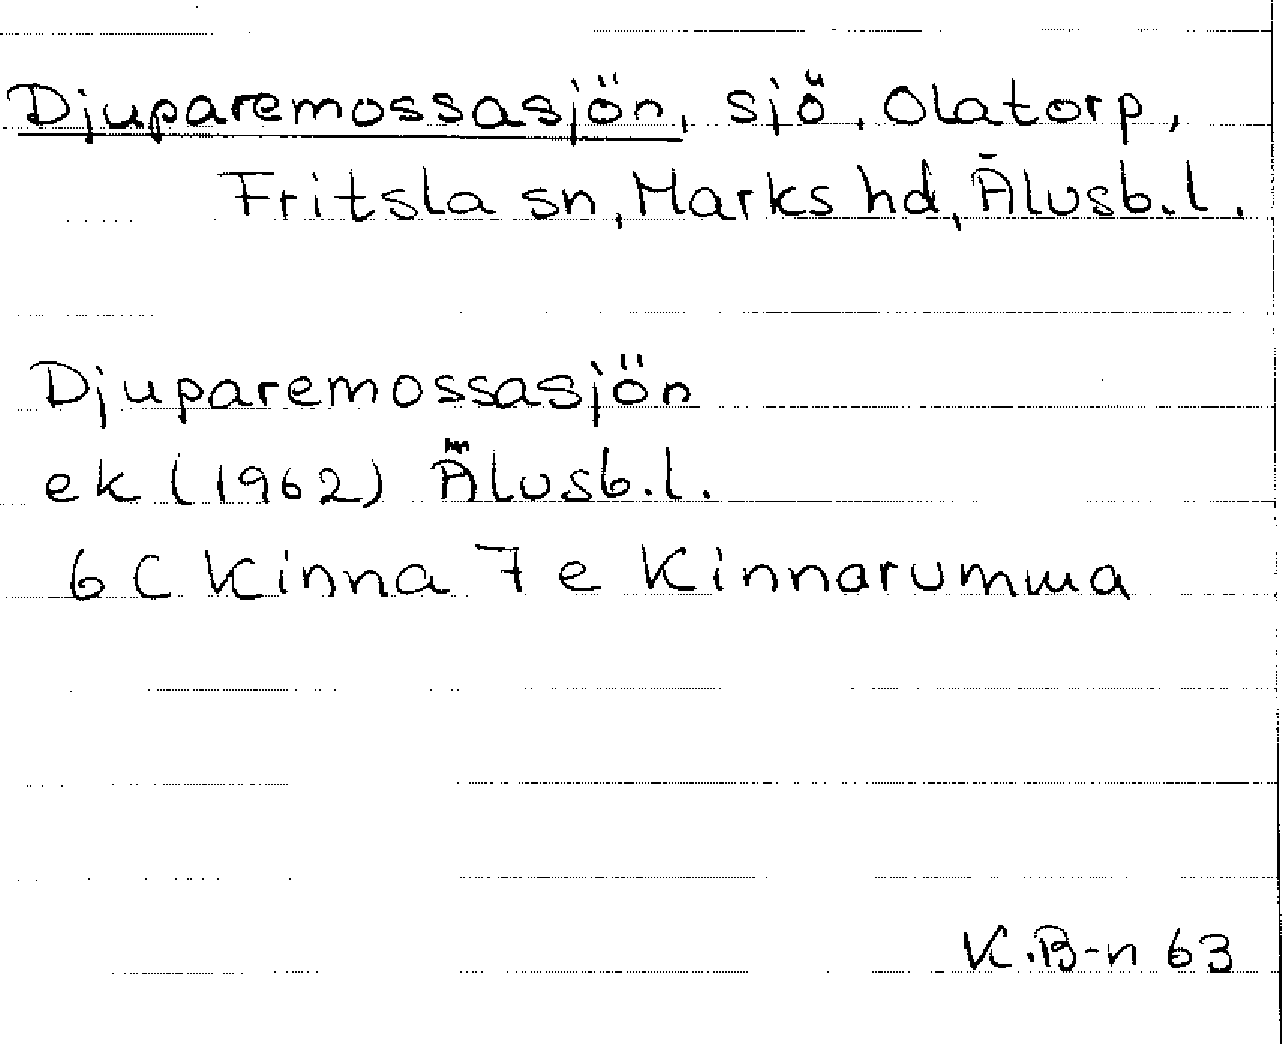 Djuparemossasjön, sjö, Olatorp,
Fritsla sn, Marks hd, Älvsb.l.
Djuparemossasjön
ek (1962) Älvsb.l.
6 C Kinna 7 e Kinnarumma
K.B-n 63